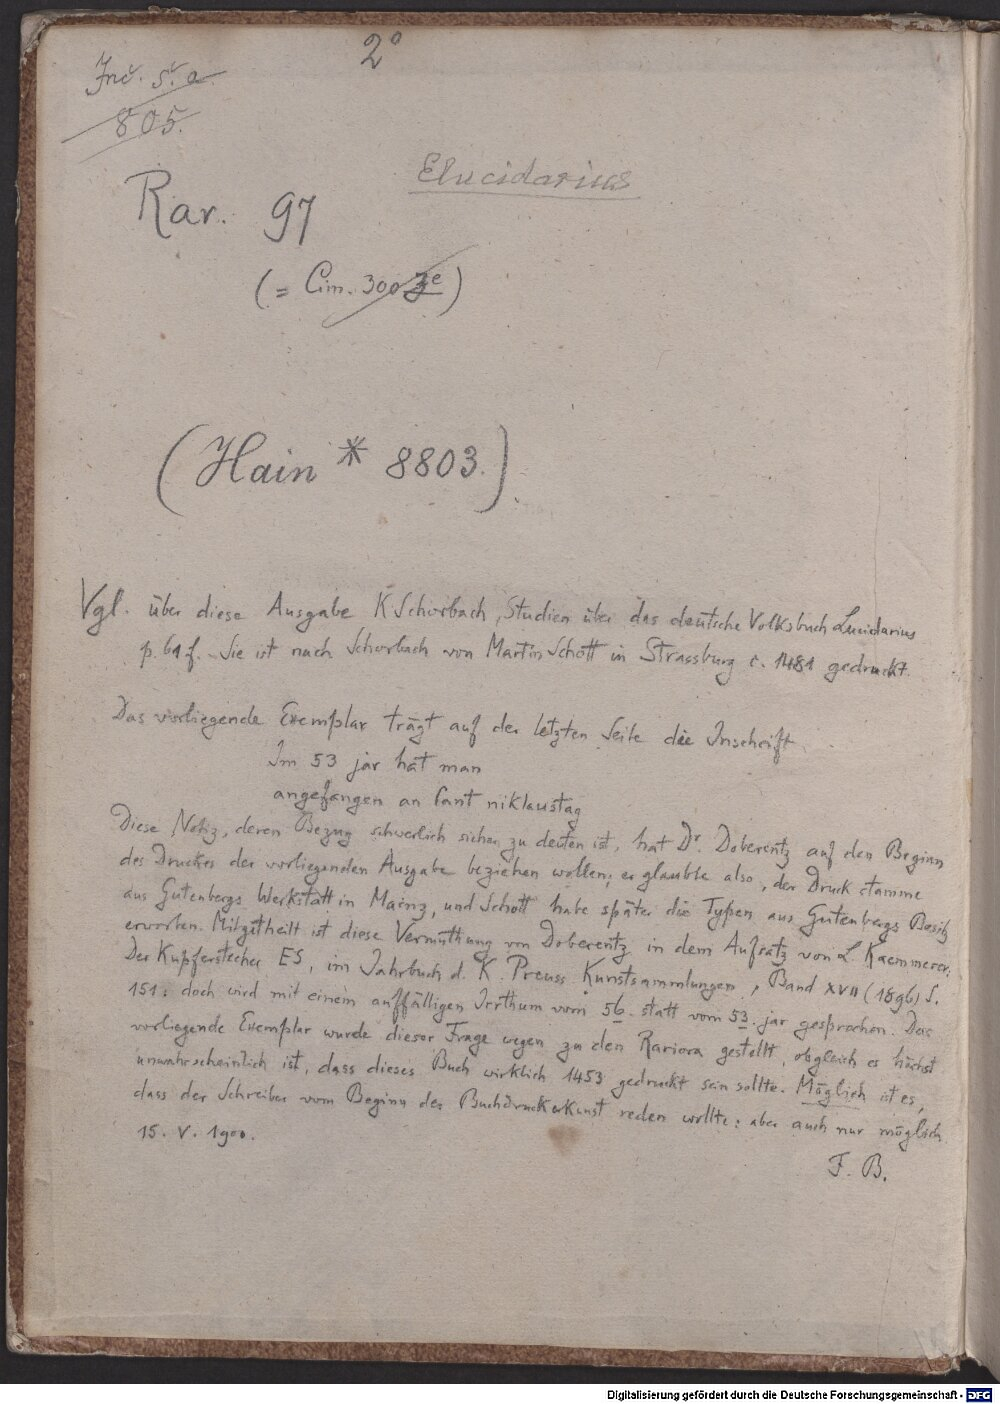 2°
Inc. s. a.
805.
Elucidarius
Rar. 97
(= Cim. 300 ze)
(Hain * 8803.)
Vgl. über diese Ausgabe K Schorbach, Studien über das deutsche Volksbuch Lucidarius
p. 61 f. Sie ist nach Schorbach von Martin Schott in Strassburg c. 1481 gedruckt.
Das vorliegende Exemplar trägt auf der letzten Seite die Inschrift
Im 53 jar hat man
angefangen an sant niklaustag
Diese Notiz, deren Bezug schwerlich sicher zu deuten ist, hat Dr. Doberentz auf den Beginn
des Druckes der vorliegenden Ausgabe beziehen wollen; er glaubte also, der Druck stamme
aus Gutenbergs Werkstatt in Mainz, und Schott habe später die Typen aus Gutenbergs Besitz
erworben. Mitgetheilt ist diese Vermuthung von Doberentz in dem Aufsatz von L. Kaemmerer,
Der Kupferstecher ES, im Jahrbuch d. K. Preuss. Kunstsammlungen, Band XVII (1896) S.
151: doch wird mit einem auffälligen Irrthum vom 56. statt vom 53. jar gesprochen. Das
vorliegende Exemplar wurde dieser Frage wegen zu den Rariora gestellt, obgleich es höchst
unwahrscheinlich ist, dass dieses Buch wirklich 1453 gedruckt sein sollte. Möglich ist es,
dass der Schreiber vom Beginn der Buchdruckerkunst reden wollte: aber auch nur möglich.
15. V. 1900.
F. B.
Digitalisierung gefördert durch die Deutsche Forschungsgemeinschaft - DFG